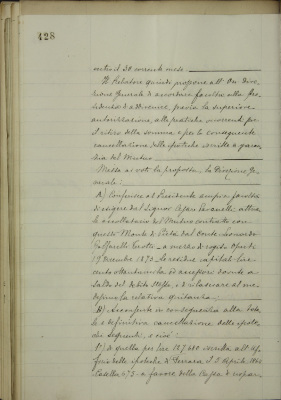 128
entro il 30 corrente mese.
Il Relatore quindi propone all' On. Dire
zione Generale di accordare facoltà alla Pre
sidenza di addivenire, previa la superiore
autorizzazione, alle pratiche occorrenti per
il ritiro della somma e per la conseguente
cancellazione della ipoteche iscritte a garan
zia del Mutuo.
Messa ai voti la proposta, la Direzione Ge
nerale:
A) Conferisce al Presidente ampia facoltà
di esigere dal Signor
accollatario del Mutuo contratto con
questo Monte di Pietà dal Conte Leonardo
a mezzo di rogito
19 Dicembre 1873 la residua capitale
cento ottantamila ed accessori dovuti a
saldo del debito stesso, e di rilasciare al me
desimo la relativa quitanza:
B) Acconsente in conseguenza alla tota
le e definitiva cancellazione delle ipote
che seguenti, e cioè:
1°) di quella per lire 227,680 accesa all' Uf
ficio delle ipoteche di Ferrara il 3 Aprile
a favore della Cassa di Rispar